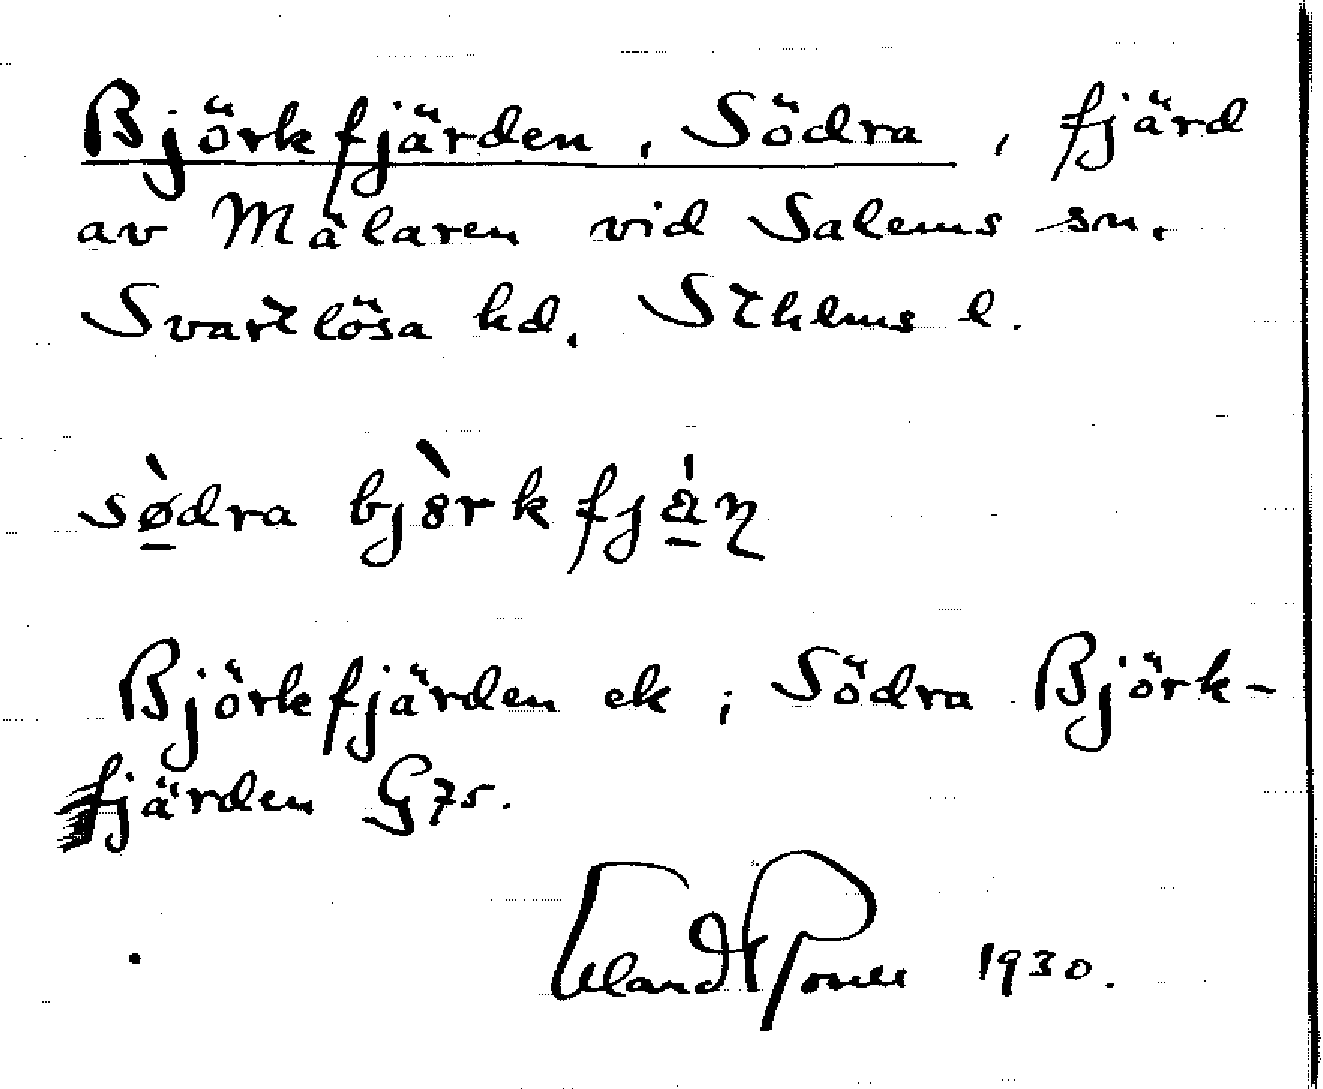 Björkfjärden, Södra, fjärd
av Mälaren vid Salems sn.
Svartlösa hd. Sthlms l.
sø̀dra bjòrkfjä́ꞃ
Björkfjärden ek; Södra Björk-
fjärden G 75.
1930.